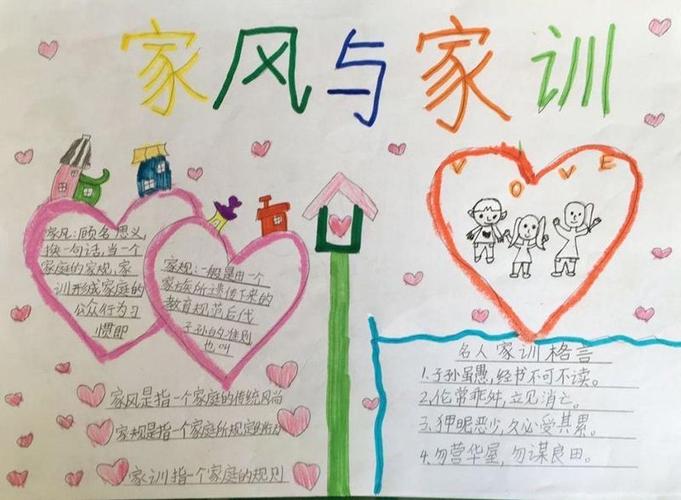 家风与家训
VOVE
家风:顾名思义,
换一句话,当一个
家庭的家规,家
训形成家庭的
公众行为习
惯即
家规:一般是由一个
家族所遗传下来的
教育规范后代
子孙的准则
也叫
家风是指一个家庭的传统风尚
家规是指一个家庭所规定的
家训指一个家庭的规则
名人家训格言
1.子孙虽愚,经书不可不读。
2.伦常乖舛,立见消亡。
3.狎昵恶少,久必受其累。
4.勿营华屋,勿谋良田。